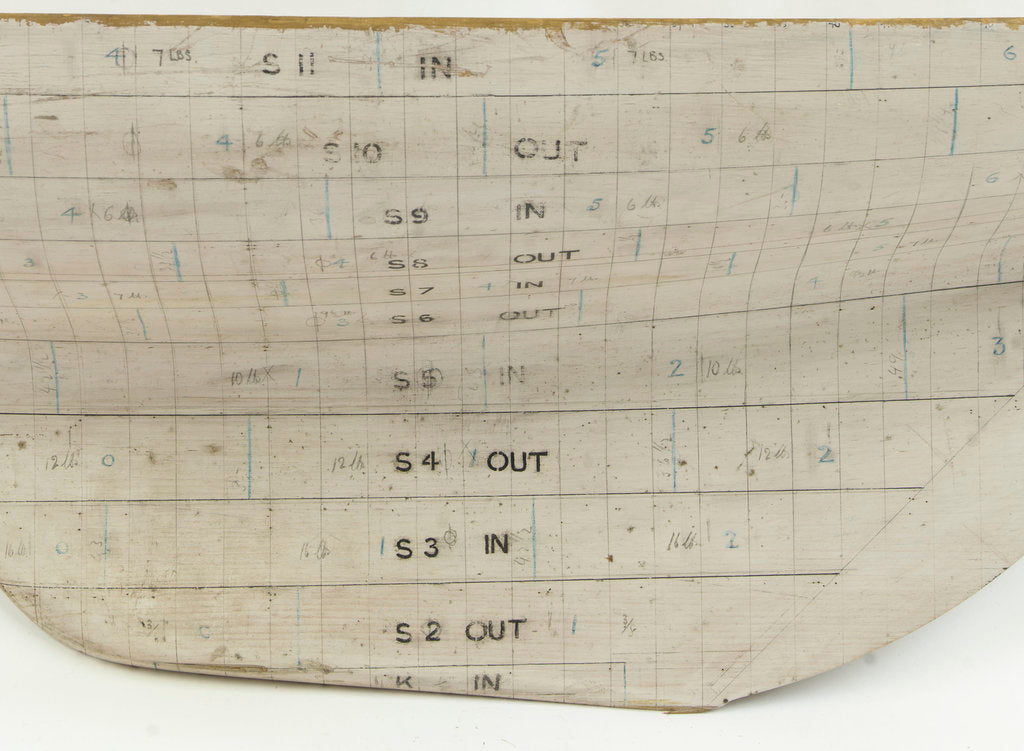 4 7 LBS S 11 IN 5 7 LBS 6
4 6 lb. S 10 OUT 5 6 lb.
4 6 lb. S 9 IN 5 6 lb. 6
3 4 6 lb. S 8 OUT
3 7 lb. S 7 IN 4
3 S 6 OUT
10 lb. 1 S 5 IN 2 10 lb. 3
12 lb. 0 12 lb. S 4 OUT 12 lb. 2
16 lb. 0 16 lb. 1 S 3 IN 16 lb. 2
S 2 OUT 1
K IN